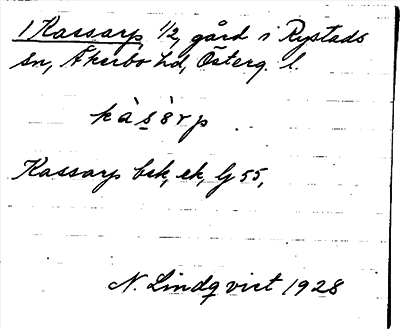 1 Kassarp, 1/2, gård i Rystads
sn, Åkerbo hd, Österg. l.
kàsàrp
Kassarp bsk, ek, Gj 55,
N. Lindqvist 1928